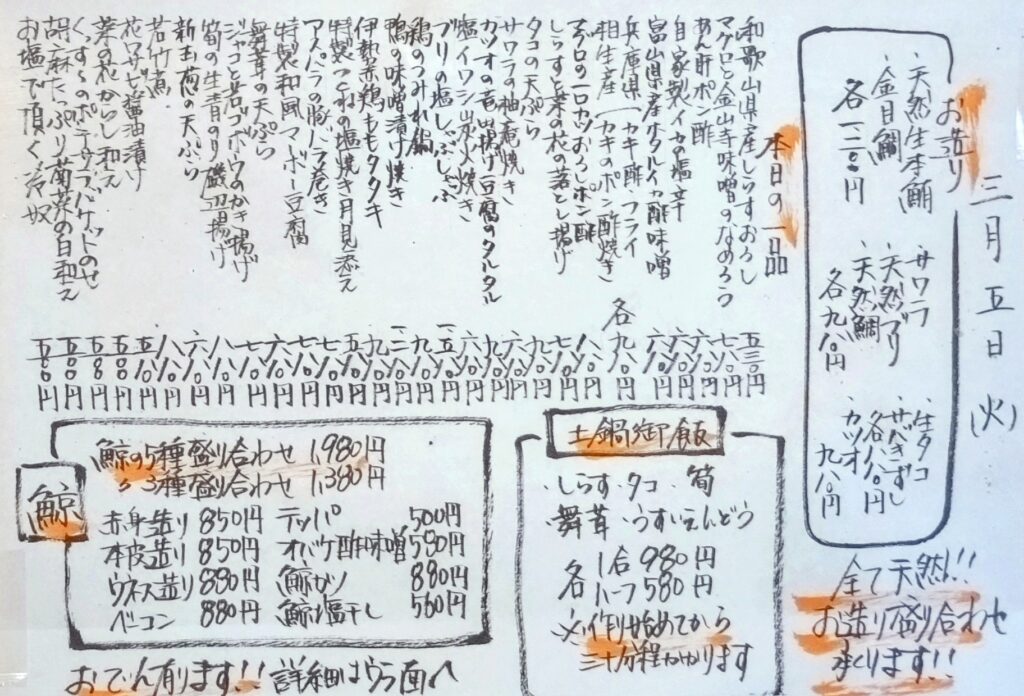 三月五日(火)
お造り
・天然生本鮪
・金目鯛
各一二〇〇円
・サワラ
・天然ブリ
・天然鯛
各九八〇円
・生タコ
各八八〇円
・カツオ
九八〇円
全て天然!!
お造り盛り合わせ
承ります!!
本日の一品
和歌山県産しらすおろし
マグロと金山寺味噌のなめろう
あん肝ポン酢
自家製イカの塩辛
富山県産ホタルイカ酢味噌
兵庫県一カキ酢フライ
相生産一カキのポン酢焼き
各九八〇円
マグロの一口カツおろしポン酢
しらすと菜の花の落とし揚げ
タコの天ぷら
サワラの柚庵焼き
カツオの竜田揚げ豆腐のタルタル
塩イワシ炭火焼き
ブリの塩しゃぶしゃぶ
鶏のつみれ鍋
鴨の味噌漬け焼き
伊勢赤鶏ももタタキ
特製つくねの塩焼き月見添え
アスパラの豚バラ巻き
特製和風マーボー豆腐
舞茸の天ぷら
ジャコと新ゴボウのかき揚げ
筍の生青のり磯辺揚げ
新玉葱の天ぷら
若竹煮
花ワサビ醤油漬け
菜の花からし和え
くん〻のポテサラバケットのせ
胡麻たっぷり菊菜の白和え
お塩で頂く冷奴
鯨
鯨の5種盛り合わせ 1,980円
〃 3種盛り合わせ 1,380円
赤身造り 850円
本皮造り 850円
ウネス造り 880円
ベーコン 880円
テッパ 500円
オバケ酢味噌 580円
鯨カツ 880円
鯨塩干し 560円
おでん有ります!! 詳細はウラ面へ
土鍋御飯
・しらす・タコ・筍
・舞茸・うすいえんどう
各 1合 980円
ハーフ 580円
※作り始めてから
三十分程かかります